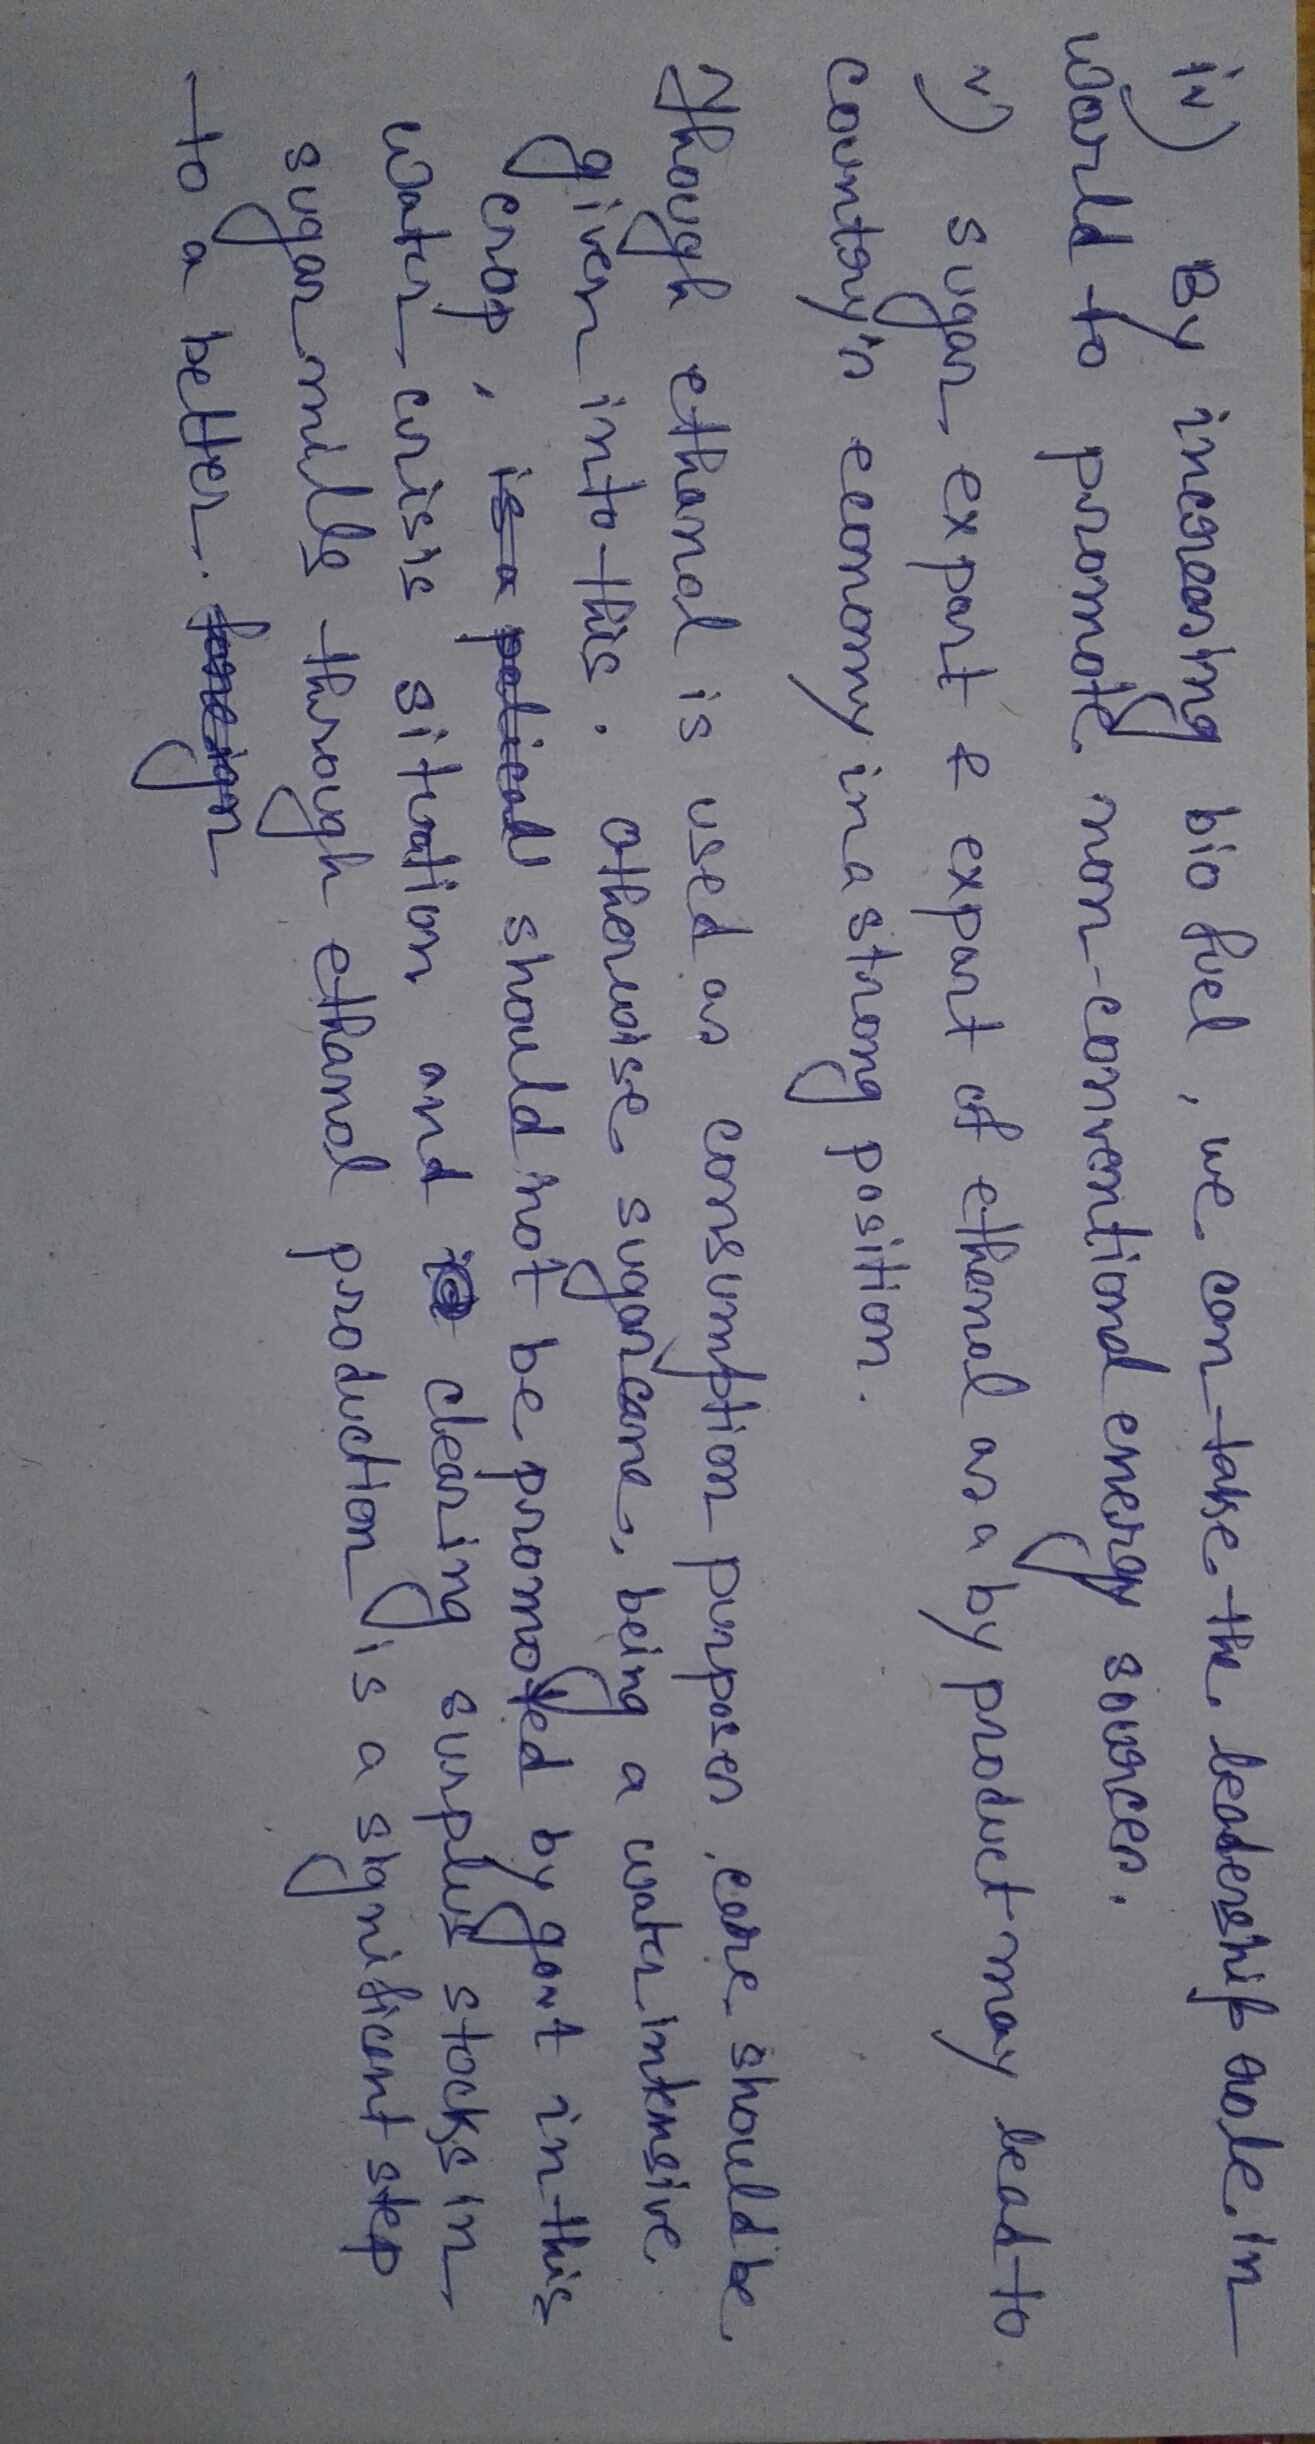 iv) By increasing bio fuel, we can take the leadership role in
world to promote non-conventional energy sources.
v) sugar export & export of ethenol as a by product may lead to
country's economy in a strong position.
Though ethanol is used as consumption purposes, care should be
given into this. Otherwise sugarcane, being a water intensive
crop, is a political should not be promoted by govt in this
water crisis situation and clearing surplus stocks in
sugar mills through ethanol production is a significant step
to a better. foreign